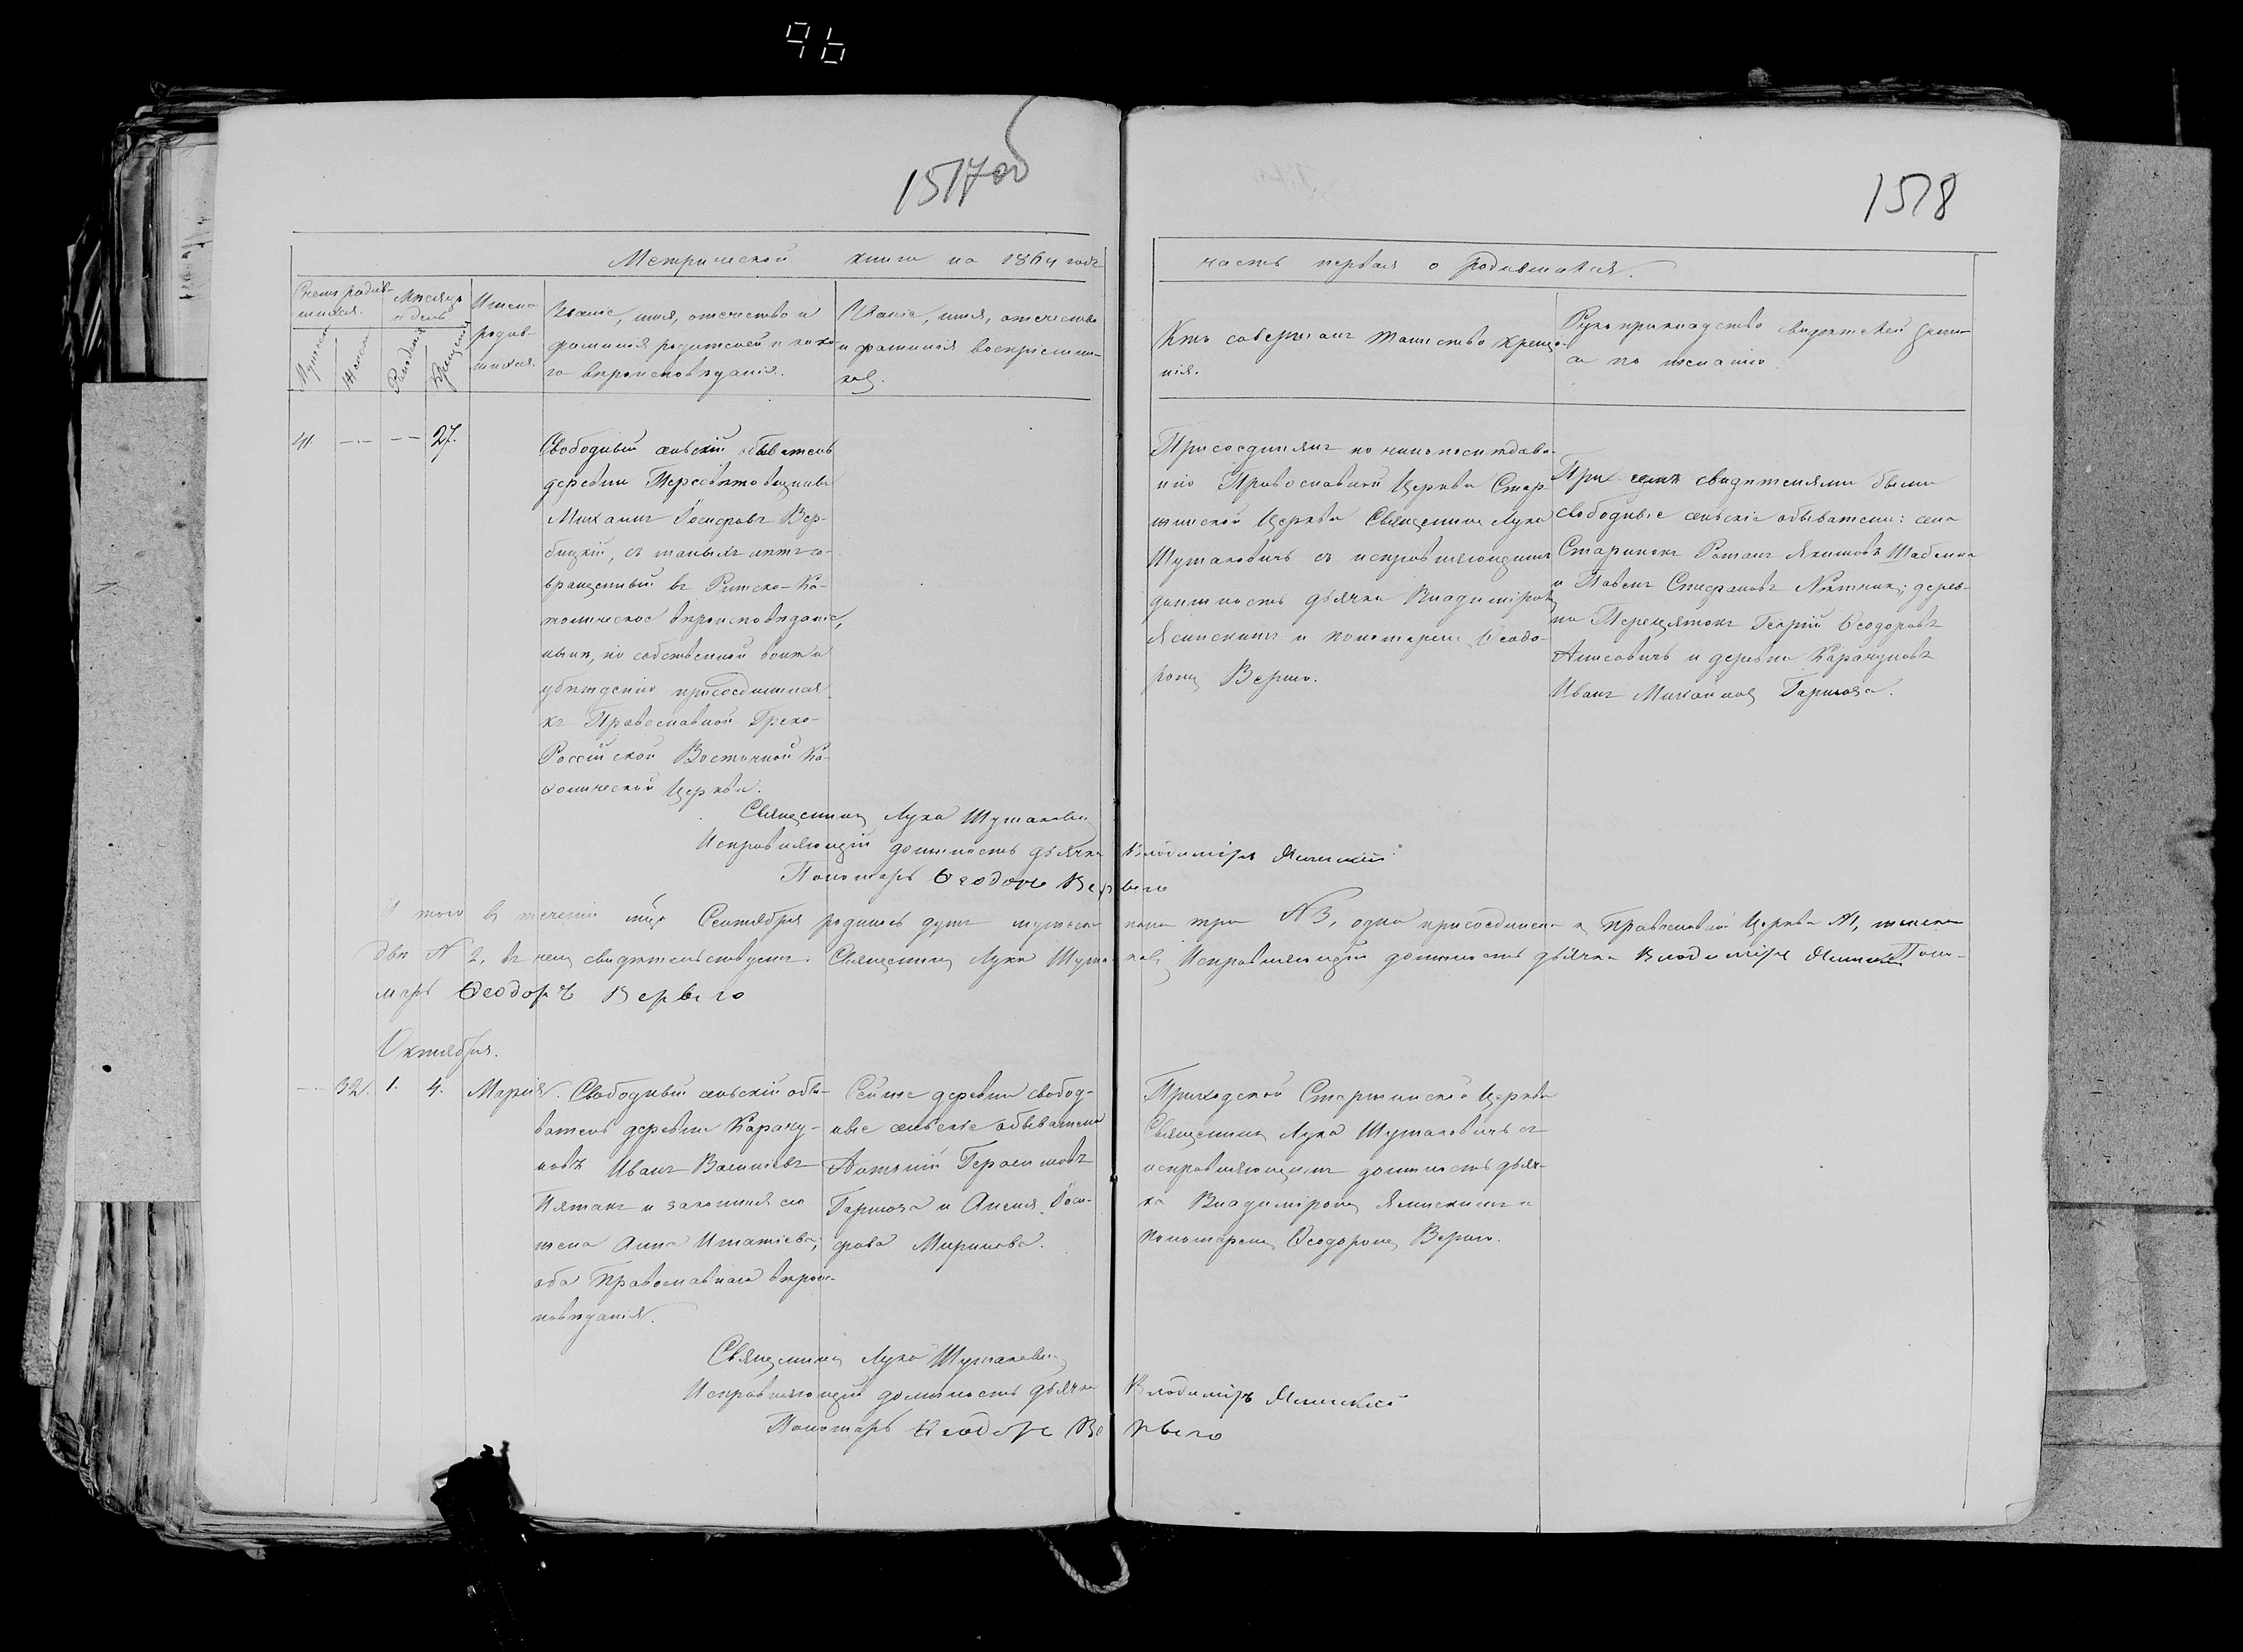 96
1517об
1518
Метрической книги на 1864 годъ
часть первая о родившихся.
Счетъ родив-
шихся.
Мужеск.
Женск.
Мѣсяцъ
и день
Рожденія
Крещенія
Имена
родив-
шихся.
Званіе, имя, отечество и
фамилія родителей и како-
го вѣроисповѣданія.
Званіе, имя, отечество
и фамилія воспріемни-
ковъ.
Кто совершалъ таинство креще-
нія.
Рукоприкладство свидѣтелей записи
по желанію
41. 27.
Свободный сельскій обыватель
деревни
Михаилъ Іосифовъ Вер-
бицкій, съ малыхъ лѣтъ со-
вращенный въ Римско-Ка-
толическое вѣроисповѣданіе,
нынѣ, по собственной волѣ и
убѣжденію присоединился
къ Православной Греко-
Россійской Восточной Ка-
ѳолической Церкви.
Присоединялъ по чиноположенію
Православной Церкви
Церкви Священникъ Лука
съ исправляющимъ
должность дьячка Владиміромъ
и пономаремъ Ѳеодо-
ромъ Верыго.
При семъ свидѣтелями были
свободные сельскіе обыватели: села
Старинокъ Романъ Якимовъ
и Павелъ Стефановъ ; дерев-
ни Георгій Ѳеодоровъ
и деревни Карачуновъ
Иванъ Михайловъ
Священникъ Лука
Исправляющій должность дьячка Владиміръ
Пономарь Ѳеодоръ Вервего
И того въ теченіи мѣца Сентября родилось душъ мужеска пола три №3, одна присоединена къ Православной Церкви №1, женска
двѣ № 2, въ чемъ свидѣтельствуемъ: Священникъ Лука Исправляющій должность дьячка Владиміръ Поно-
марь Ѳеодоръ Вервего
Октября.
32. 1. 4. Марія.
Свободный сельскій обы-
ватель деревни Карачу-
новъ Иванъ Васильевъ
Пятакъ и законная его
жена Анна Игнатіева;
оба Православнаго вѣроис-
повѣданія.
Сей же деревни свобод-
ные сельскіе обыватели
Антоній Герасимовъ
и Анеля Іоси-
фова
Приходской Церкви
Священникъ Лука съ
исправляющимъ должность дьяч-
ка Владиміромъ и
пономаремъ Ѳеодоромъ Верыго.
Священникъ Лука
Исправляющій должность дьячка Владиміръ
Пономарь Ѳеодоръ Вервего